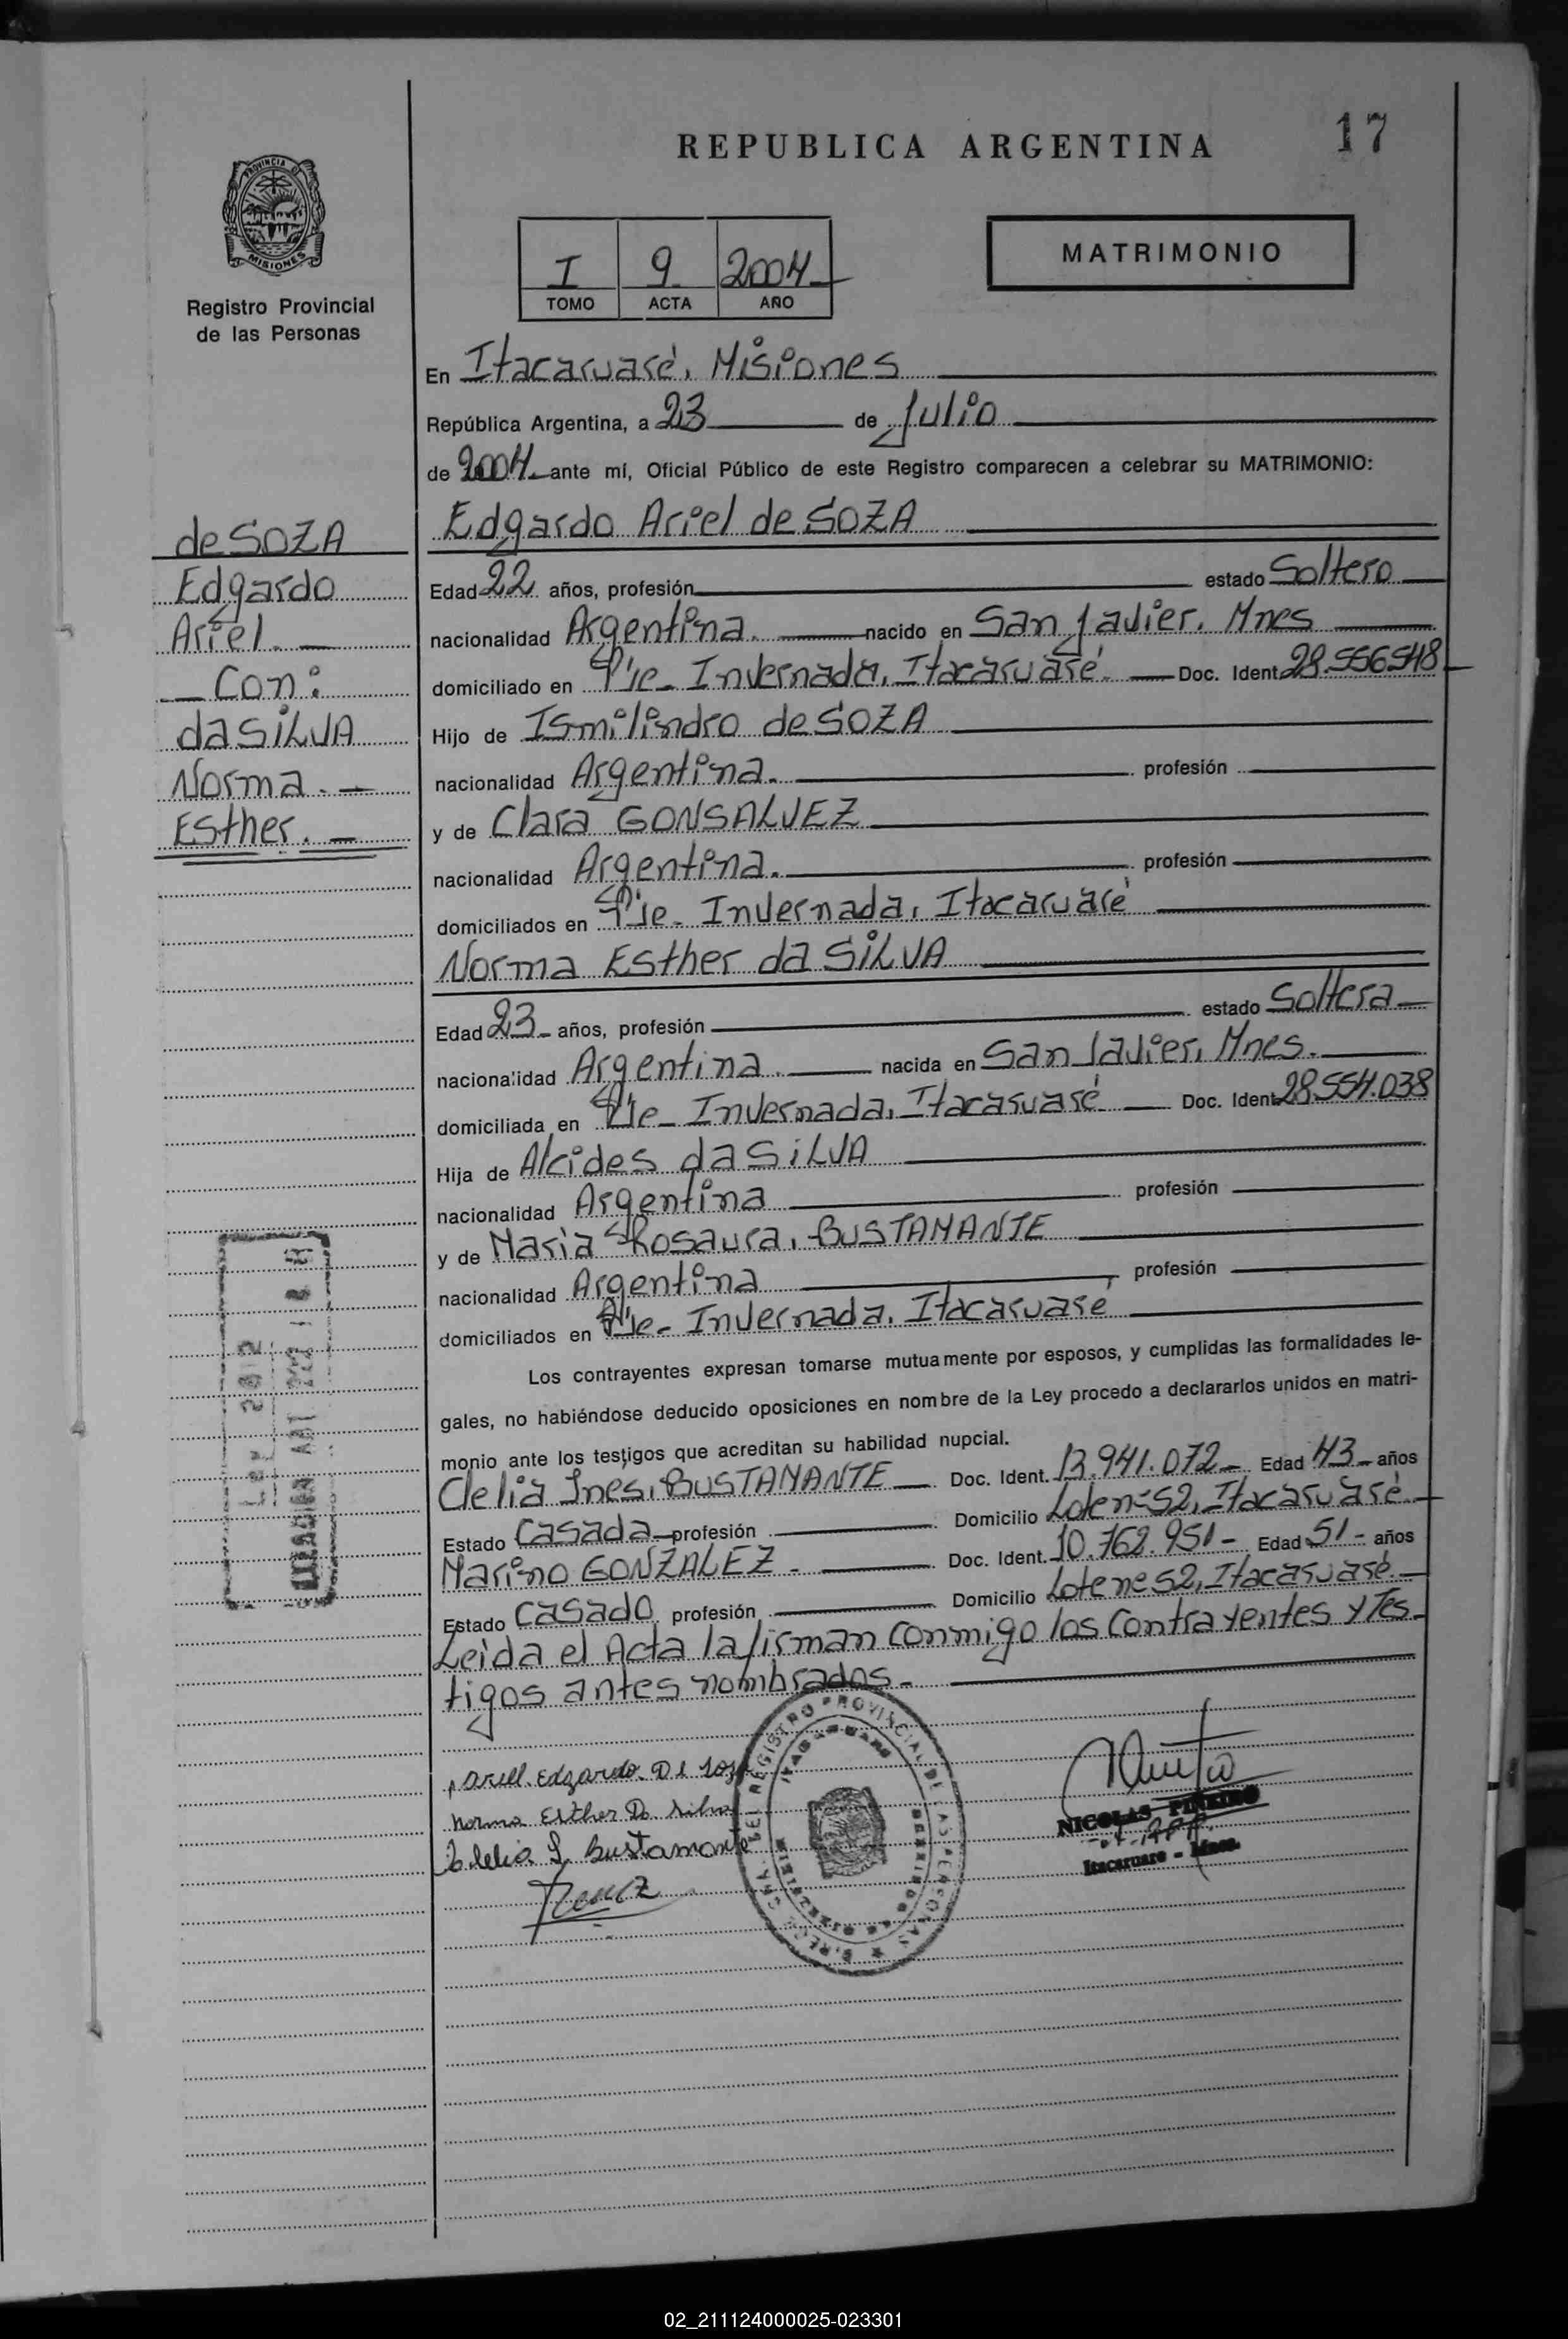 REPUBLICA ARGENTINA 17
PROVINCIA DE
MISIONES
Registro Provincial
de las Personas
I 9 2004
TOMO ACTA AÑO
MATRIMONIO
En Itacaruaré, Misiones
República Argentina, a 23 de Julio
de 2004 ante mí, Oficial Público de este Registro comparecen a celebrar su MATRIMONIO:
de SOZA
Edgardo
Ariel.
Con:
da SiLVA
Norma.
Esther.
Edgardo Ariel de SOZA
Edad 22 años, profesión estado Soltero
nacionalidad Argentina. nacido en San Javier. Mnes
domiciliado en Pje- Invernada, Itacaruaré. Doc. Ident. 28.556548
Hijo de Ismilindro de SOZA
nacionalidad Argentina. profesión
y de Clara GONSALVEZ
nacionalidad Argentina. profesión
domiciliados en Pje- Invernada, Itacaruaré
Norma Esther da SiLVA
Edad 23 años, profesión estado Soltera
nacionalidad Argentina. nacida en San Javier, Mnes.
domiciliada en Pje- Invernada, Itacaruaré Doc. Ident. 28.554.038
Hija de Alcides da SiLVA
nacionalidad Argentina profesión
y de Maria Rosaura, BUSTAMANTE
nacionalidad Argentina profesión
domiciliados en Pje- Invernada, Itacaruaré
Los contrayentes expresan tomarse mutuamente por esposos, y cumplidas las formalidades le-
gales, no habiéndose deducido oposiciones en nombre de la Ley procedo a declararlos unidos en matri-
monio ante los testigos que acreditan su habilidad nupcial.
Clelia Ines, BUSTAMANTE Doc. Ident. 13.941.072- Edad 43 años
Estado Casada profesión Domicilio Lote nº 52, Itacaruaré
Marino GONZALEZ. Doc. Ident. 10.762.951- Edad 51- años
Estado Casado profesión Domicilio Lote nº 52, Itacaruaré
Leida el Acta la firman conmigo los Contrayentes y Tes-
tigos antes nombrados.
Ariell Edgardo De Soza
Norma Esther Da Silva
Clelia I. Bustamante
REGISTRO PROVINCIAL DE LAS PERSONAS
NICOLAS PIÑEIRO
Itacaruare - Mnes.
02_211124000025-023301